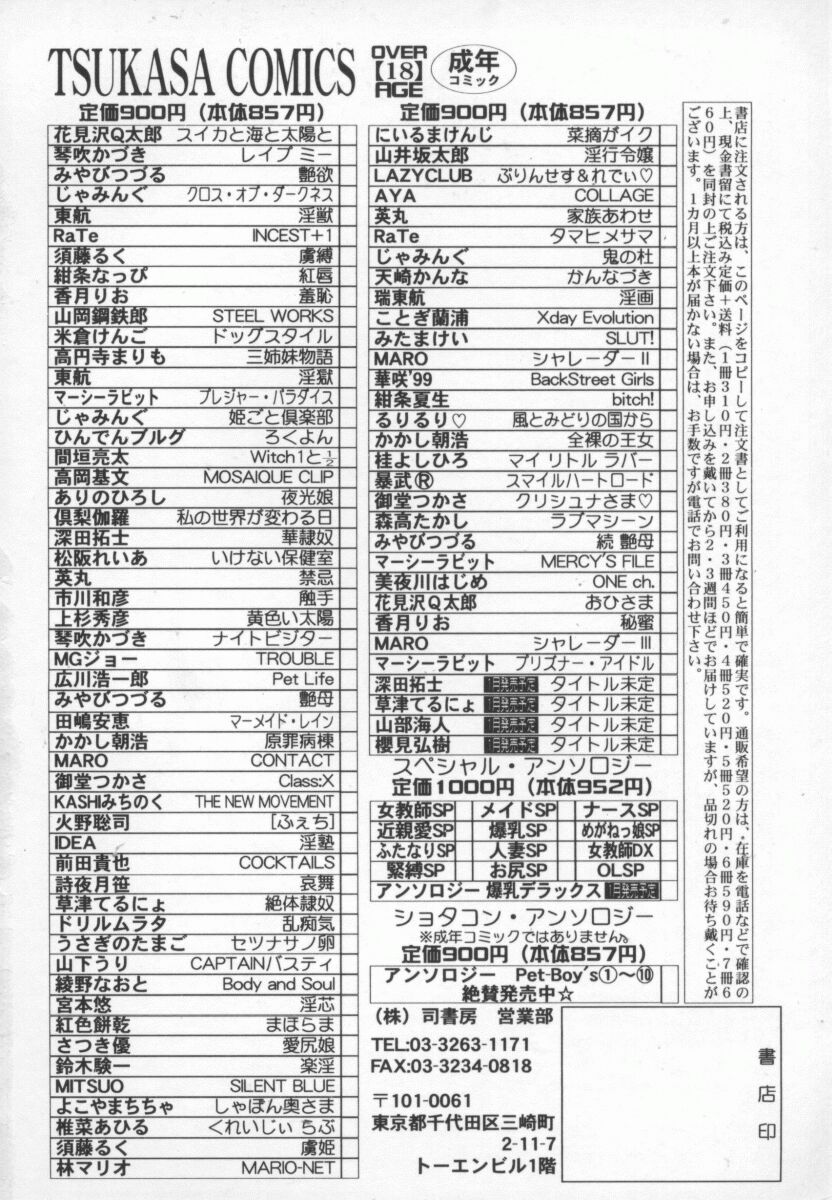 TSUKASA COMICS
OVER
【18】
AGE
成年
コミック
定価900円（本体857円）
花見沢Q太郎 スイカと海と太陽と
琴吹かづき レイプ ミー
みやびつづる 艶欲
じゃみんぐ クロス・オブ・ダークネス
東航 淫獣
RaTe INCEST+1
須藤るく 虜縛
紺条なっぴ 紅唇
香月りお 羞恥
山岡鋼鉄郎 STEEL WORKS
米倉けんご ドッグスタイル
高円寺まりも 三姉妹物語
東航 淫獄
マーシーラビット プレジャー・パラダイス
じゃみんぐ 姫ごと倶楽部
ひんでんブルグ ろくよん
間垣亮太 Witch1と½
高岡基文 MOSAIQUE CLIP
ありのひろし 夜光娘
倶梨伽羅 私の世界が変わる日
深田拓士 華隷奴
松阪れいあ いけない保健室
英丸 禁忌
市川和彦 触手
上杉秀彦 黄色い太陽
琴吹かづき ナイトビジター
MGジョー TROUBLE
広川浩一郎 Pet Life
みやびつづる 艶母
田嶋安恵 マーメイド・レイン
かかし朝浩 原罪病棟
MARO CONTACT
御堂つかさ Class:X
KASHIみちのく THE NEW MOVEMENT
火野聡司 [ふぇち]
IDEA 淫塾
前田貴也 COCKTAILS
詩夜月笹 哀舞
草津てるにょ 絶体隷奴
ドリルムラタ 乱痴気
うさぎのたまご セツナサノ卵
山下うり CAPTAINバスティ
綾野なおと Body and Soul
宮本悠 淫芯
紅色餅乾 まほらま
さつき優 愛尻娘
鈴木験一 楽淫
MITSUO SILENT BLUE
よこやまちちゃ しゃぼん奥さま
椎菜あひる くれいじぃ ちぶ
須藤るく 虜姫
林マリオ MARIO-NET
定価900円（本体857円）
にいるまけんじ 菜摘がイク
山井坂太郎 淫行令嬢
LAZYCLUB ぷりんせす&れでぃ♡
AYA COLLAGE
英丸 家族あわせ
RaTe タマヒメサマ
じゃみんぐ 鬼の杜
天崎かんな かんなづき
瑞東航 淫画
ことぎ蘭浦 Xday Evolution
みたまけい SLUT!
MARO シャレーダーⅡ
華咲'99 BackStreet Girls
紺条夏生 bitch!
るりるり♡ 風とみどりの国から
かかし朝浩 全裸の王女
桂よしひろ マイ リトル ラバー
暴武® スマイルハートロード
御堂つかさ クリシュナさま♡
森高たかし ラブマシーン
みやびつづる 続 艶母
マーシーラビット MERCY'S FILE
美夜川はじめ ONE ch.
花見沢Q太郎 おひさま
香月りお 秘蜜
MARO シャレーダーⅢ
マーシーラビット プリズナー・アイドル
深田拓士 1月発売予定 タイトル未定
草津てるにょ 1月発売予定 タイトル未定
山部海人 1月発売予定 タイトル未定
櫻見弘樹 1月発売予定 タイトル未定
スペシャル・アンソロジー
定価1000円（本体952円）
女教師SP メイドSP ナースSP
近親愛SP 爆乳SP めがねっ娘SP
ふたなりSP 人妻SP 女教師DX
緊縛SP お尻SP OLSP
アンソロジー 爆乳デラックス 1月発売予定
ショタコン・アンソロジー
※成年コミックではありません。
定価900円（本体857円）
アンソロジー Pet-Boy's①～⑩
絶賛発売中☆
（株）司書房 営業部
TEL:03-3263-1171
FAX:03-3234-0818
〒101-0061
東京都千代田区三崎町
2-11-7
トーエンビル1階
書店に注文される方は、このページをコピーして注文書としてご利用になると簡単で確実です。通販希望の方は、在庫を電話などで確認の
上、現金書留にて税込み定価＋送料（1冊310円・2冊380円・3冊450円・4冊520円・5冊520円・6冊590円・7冊6
60円）を同封の上ご注文下さい。また、お申し込みを戴いてから2・3週間ほどでお届けしていますが、品切れの場合お待ち戴くことが
ございます。1カ月以上本が届かない場合は、お手数ですが電話でお問い合わせ下さい。
書店印